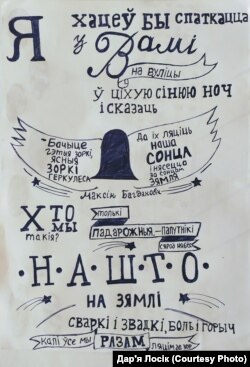 Я хацеў бы спаткацца
у Вамі
на вуліцы
ў ціхую сінюю ноч
і сказаць
- Бачыце
гэтыя зоркі,
ясныя
зоркі
Геркулеса
Да іх ляціць
наша
сонца
і нясецца
за сонцам
зямля
Максім Багдановіч
Хто
мы
такія?
толькі
падарожныя – папутнікі
сярод нябёс
НАШТО
на зямлі
сваркі і звадкі, боль і горыч
калі ўсе мы разам ляцім да зор
Дар'я Лосік (Courtesy Photo)